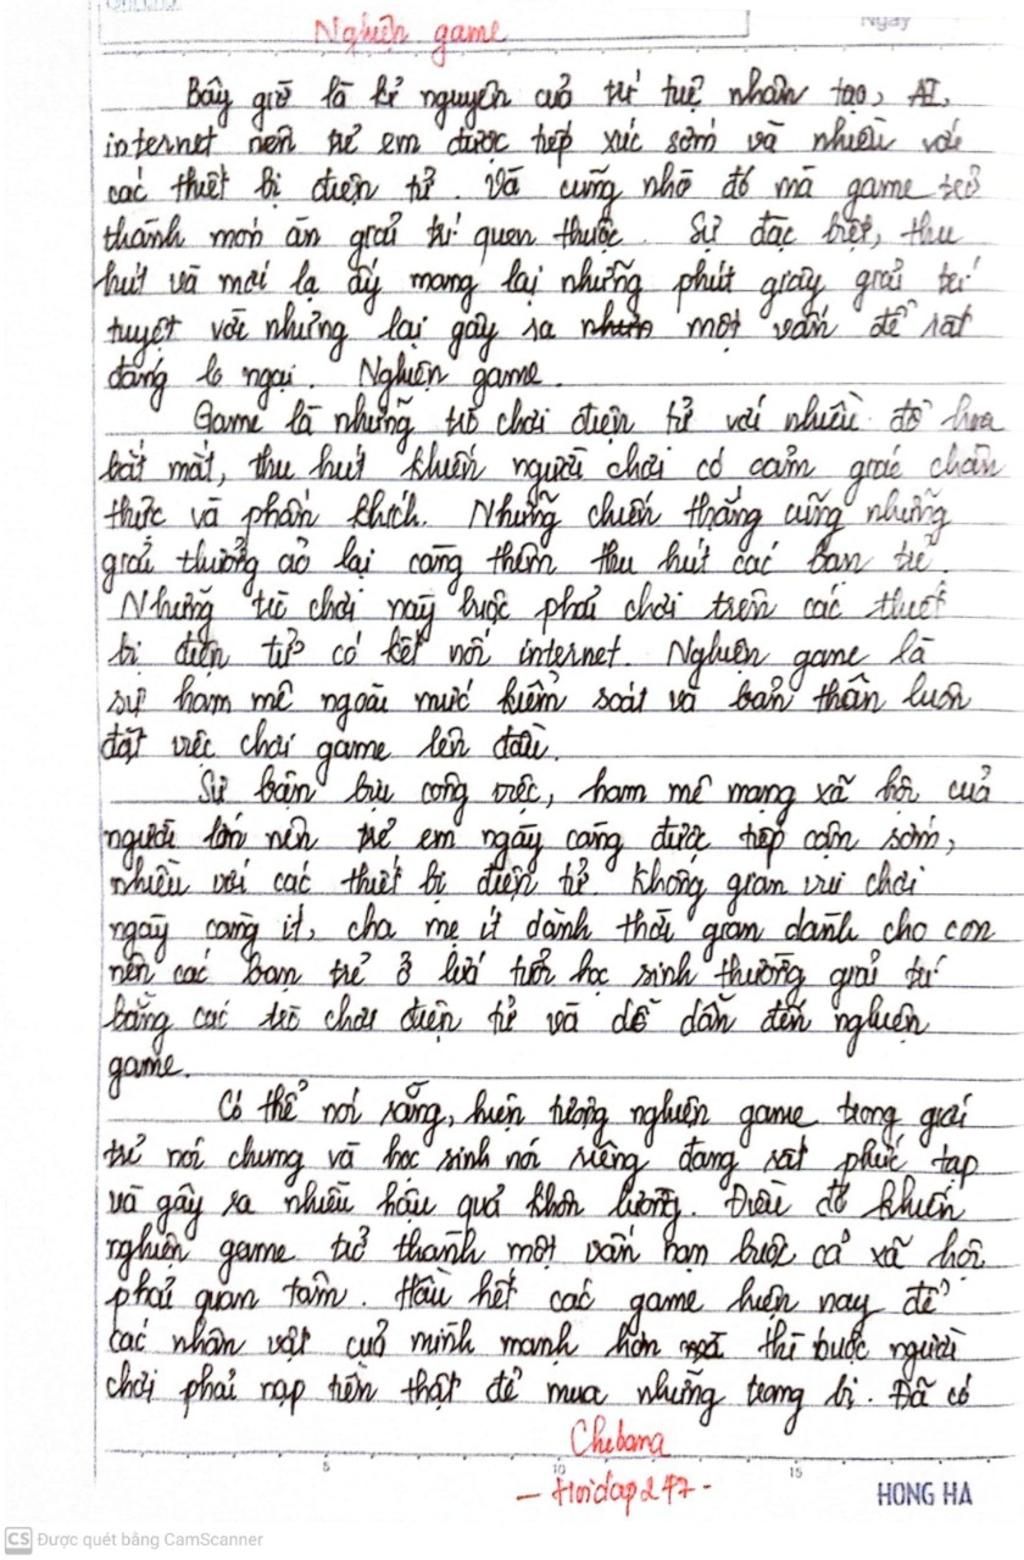 Ngày
Nghiện game
Bây giờ là kỉ nguyên của trí tuệ nhân tạo, AI,
internet nên trẻ em được tiếp xúc sớm và nhiều với
các thiết bị điện tử. Và cũng nhờ đó mà game trở
thành món ăn giải trí quen thuộc. Sự đặc biệt, thu
hút và mới lạ ấy mang lại những phút giây giải trí
tuyệt vời nhưng lại gây ra một vấn đề rất
đáng lo ngại. Nghiện game.
Game là những trò chơi điện tử với nhiều đồ họa
bắt mắt, thu hút khiến người chơi có cảm giác chân
thực và phấn khích. Những chiến thắng cũng những
giải thưởng ảo lại càng thêm thu hút các bạn trẻ.
Những trò chơi này buộc phải chơi trên các thiết
bị điện tử có kết nối internet. Nghiện game là
sự ham mê ngoài mức kiểm soát và bản thân luôn
đặt việc chơi game lên đầu.
Sự bận bịu công việc, ham mê mạng xã hội của
người lớn nên trẻ em ngày càng được tiếp cận sớm,
nhiều với các thiết bị điện tử. Không gian vui chơi
ngày càng ít, cha mẹ ít dành thời gian dành cho con
nên các bạn trẻ ở lứa tuổi học sinh thường giải trí
bằng các trò chơi điện tử và dễ dẫn đến nghiện
game.
Có thể nói rằng, hiện tượng nghiện game trong giới
trẻ nói chung và học sinh nói riêng đang rất phức tạp
và gây ra nhiều hậu quả khôn lường. Điều đó khiến
nghiện game trở thành một vấn nạn buộc cả xã hội
phải quan tâm. Hầu hết các game hiện nay để
các nhân vật của mình mạnh hơn thì buộc người
chơi phải nạp tiền thật để mua những trang bị. Đã có
Chebana
5 10 15
- Hoidap247 -
HONG HA
CS Được quét bằng CamScanner